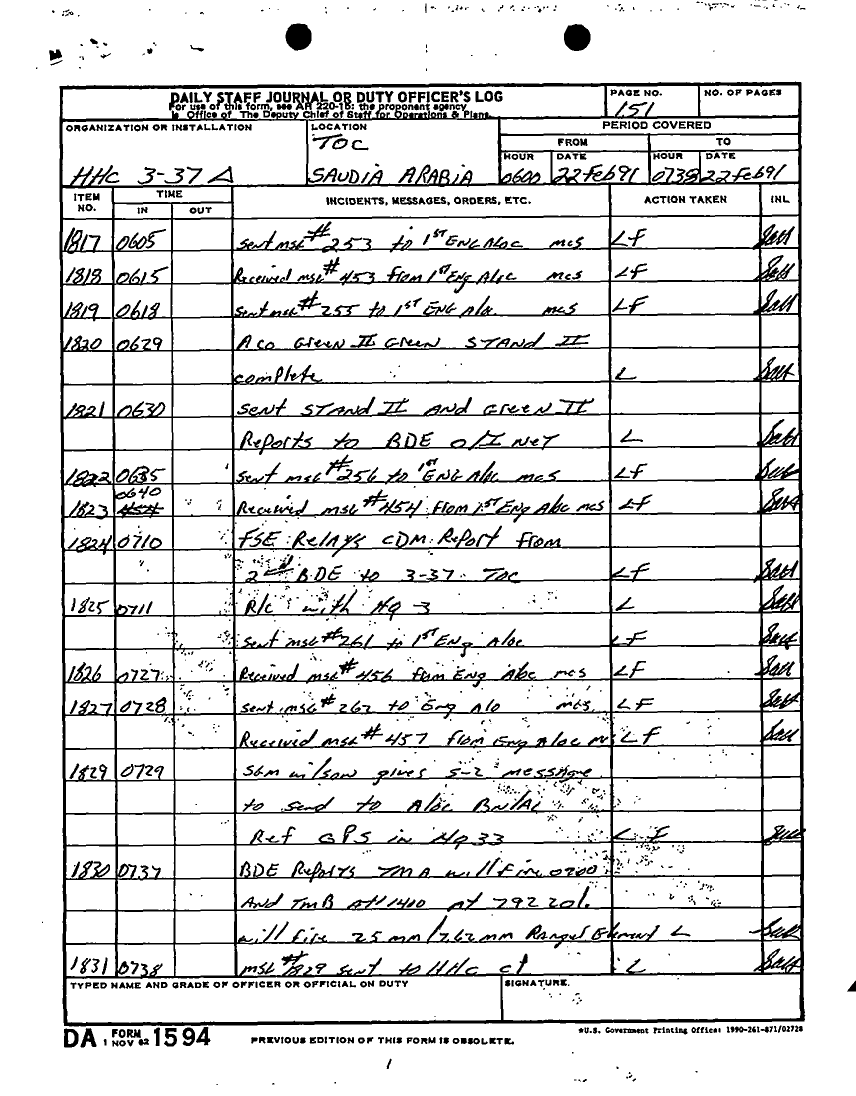 DAILY STAFF JOURNAL OR DUTY OFFICER'S LOG
For use of this form, see AR 220-15; the proponent agency
is Office of The Deputy Chief of Staff for Operations & Plans.
PAGE NO.
151
NO. OF PAGES
ORGANIZATION OR INSTALLATION
HHC 3-37 A
LOCATION
TOC
SAUDIA ARABIA
PERIOD COVERED
FROM TO
HOUR DATE HOUR DATE
0600 22 Feb 91 0738 22 Feb 91
ITEM NO. TIME INCIDENTS, MESSAGES, ORDERS, ETC. ACTION TAKEN INL
IN OUT
1817 0605 sent msg # 253 to 1ST ENG Aloc mcs LF
1818 0615 Received msg # 453 from 1st Eng Aloc mcs LF
1819 0618 sent msg # 255 to 1ST ENG Aloc mcs LF
1820 0629 A co Green II Green STAND II
complete L
1821 0630 sent STAND II AND Green II
Reports to BDE O/I NET L
1822 0635 sent msg # 256 to 1ST ENG Aloc mcs LF
0640
1823 454 Received msg # 454 from 1ST Eng Aloc mcs LF
1824 0710 FSE Relays CDM Report from
2nd BDE to 3-37 TOC LF
1825 0711 R/c with HQ 3 L
sent msg # 261 to 1ST Eng Aloc LF
1826 0727 Received msg # 456 from Eng Aloc mcs LF
1827 0728 sent msg # 262 to Eng Alo mcs LF
Received msg # 457 from Eng Aloc m LF
1829 0729 SGM wilson gives S-2 message
to send to Aloc
Ref GPS in HQ 33 LF
1830 0737 BDE Reports TM A will fire 0700
And TM B at 1410 at 792 201.
will fire 25 mm/7.62 mm Range Element L
1831 0738 msg # 1829 sent to HHC L
TYPED NAME AND GRADE OF OFFICER OR OFFICIAL ON DUTY
SIGNATURE
DA FORM 1 NOV 62 1594
PREVIOUS EDITION OF THIS FORM IS OBSOLETE.
*U.S. Government Printing Office: 1990-261-871/02728
1